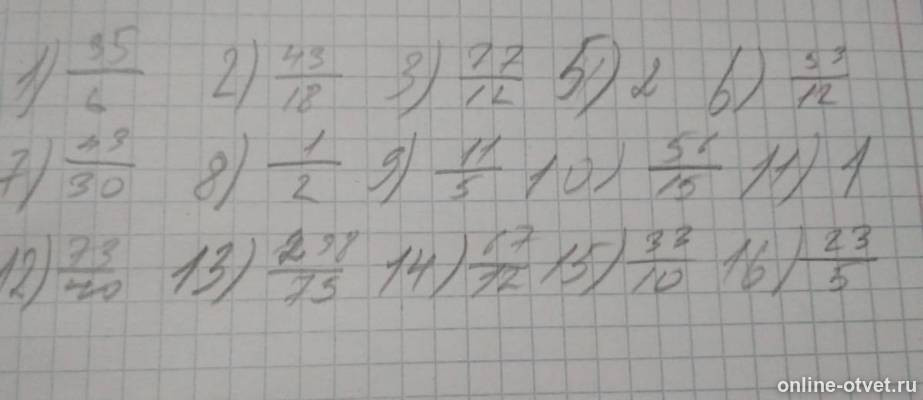 1) 35/6 2) 43/18 3) 77/12 5) 2 6) 53/12
7) 43/30 8) 1/2 9) 11/5 10) 51/15 11) 1
12) 73/40 13) 298/75 14) 67/12 15) 33/10 16) 23/5
online-otvet.ru